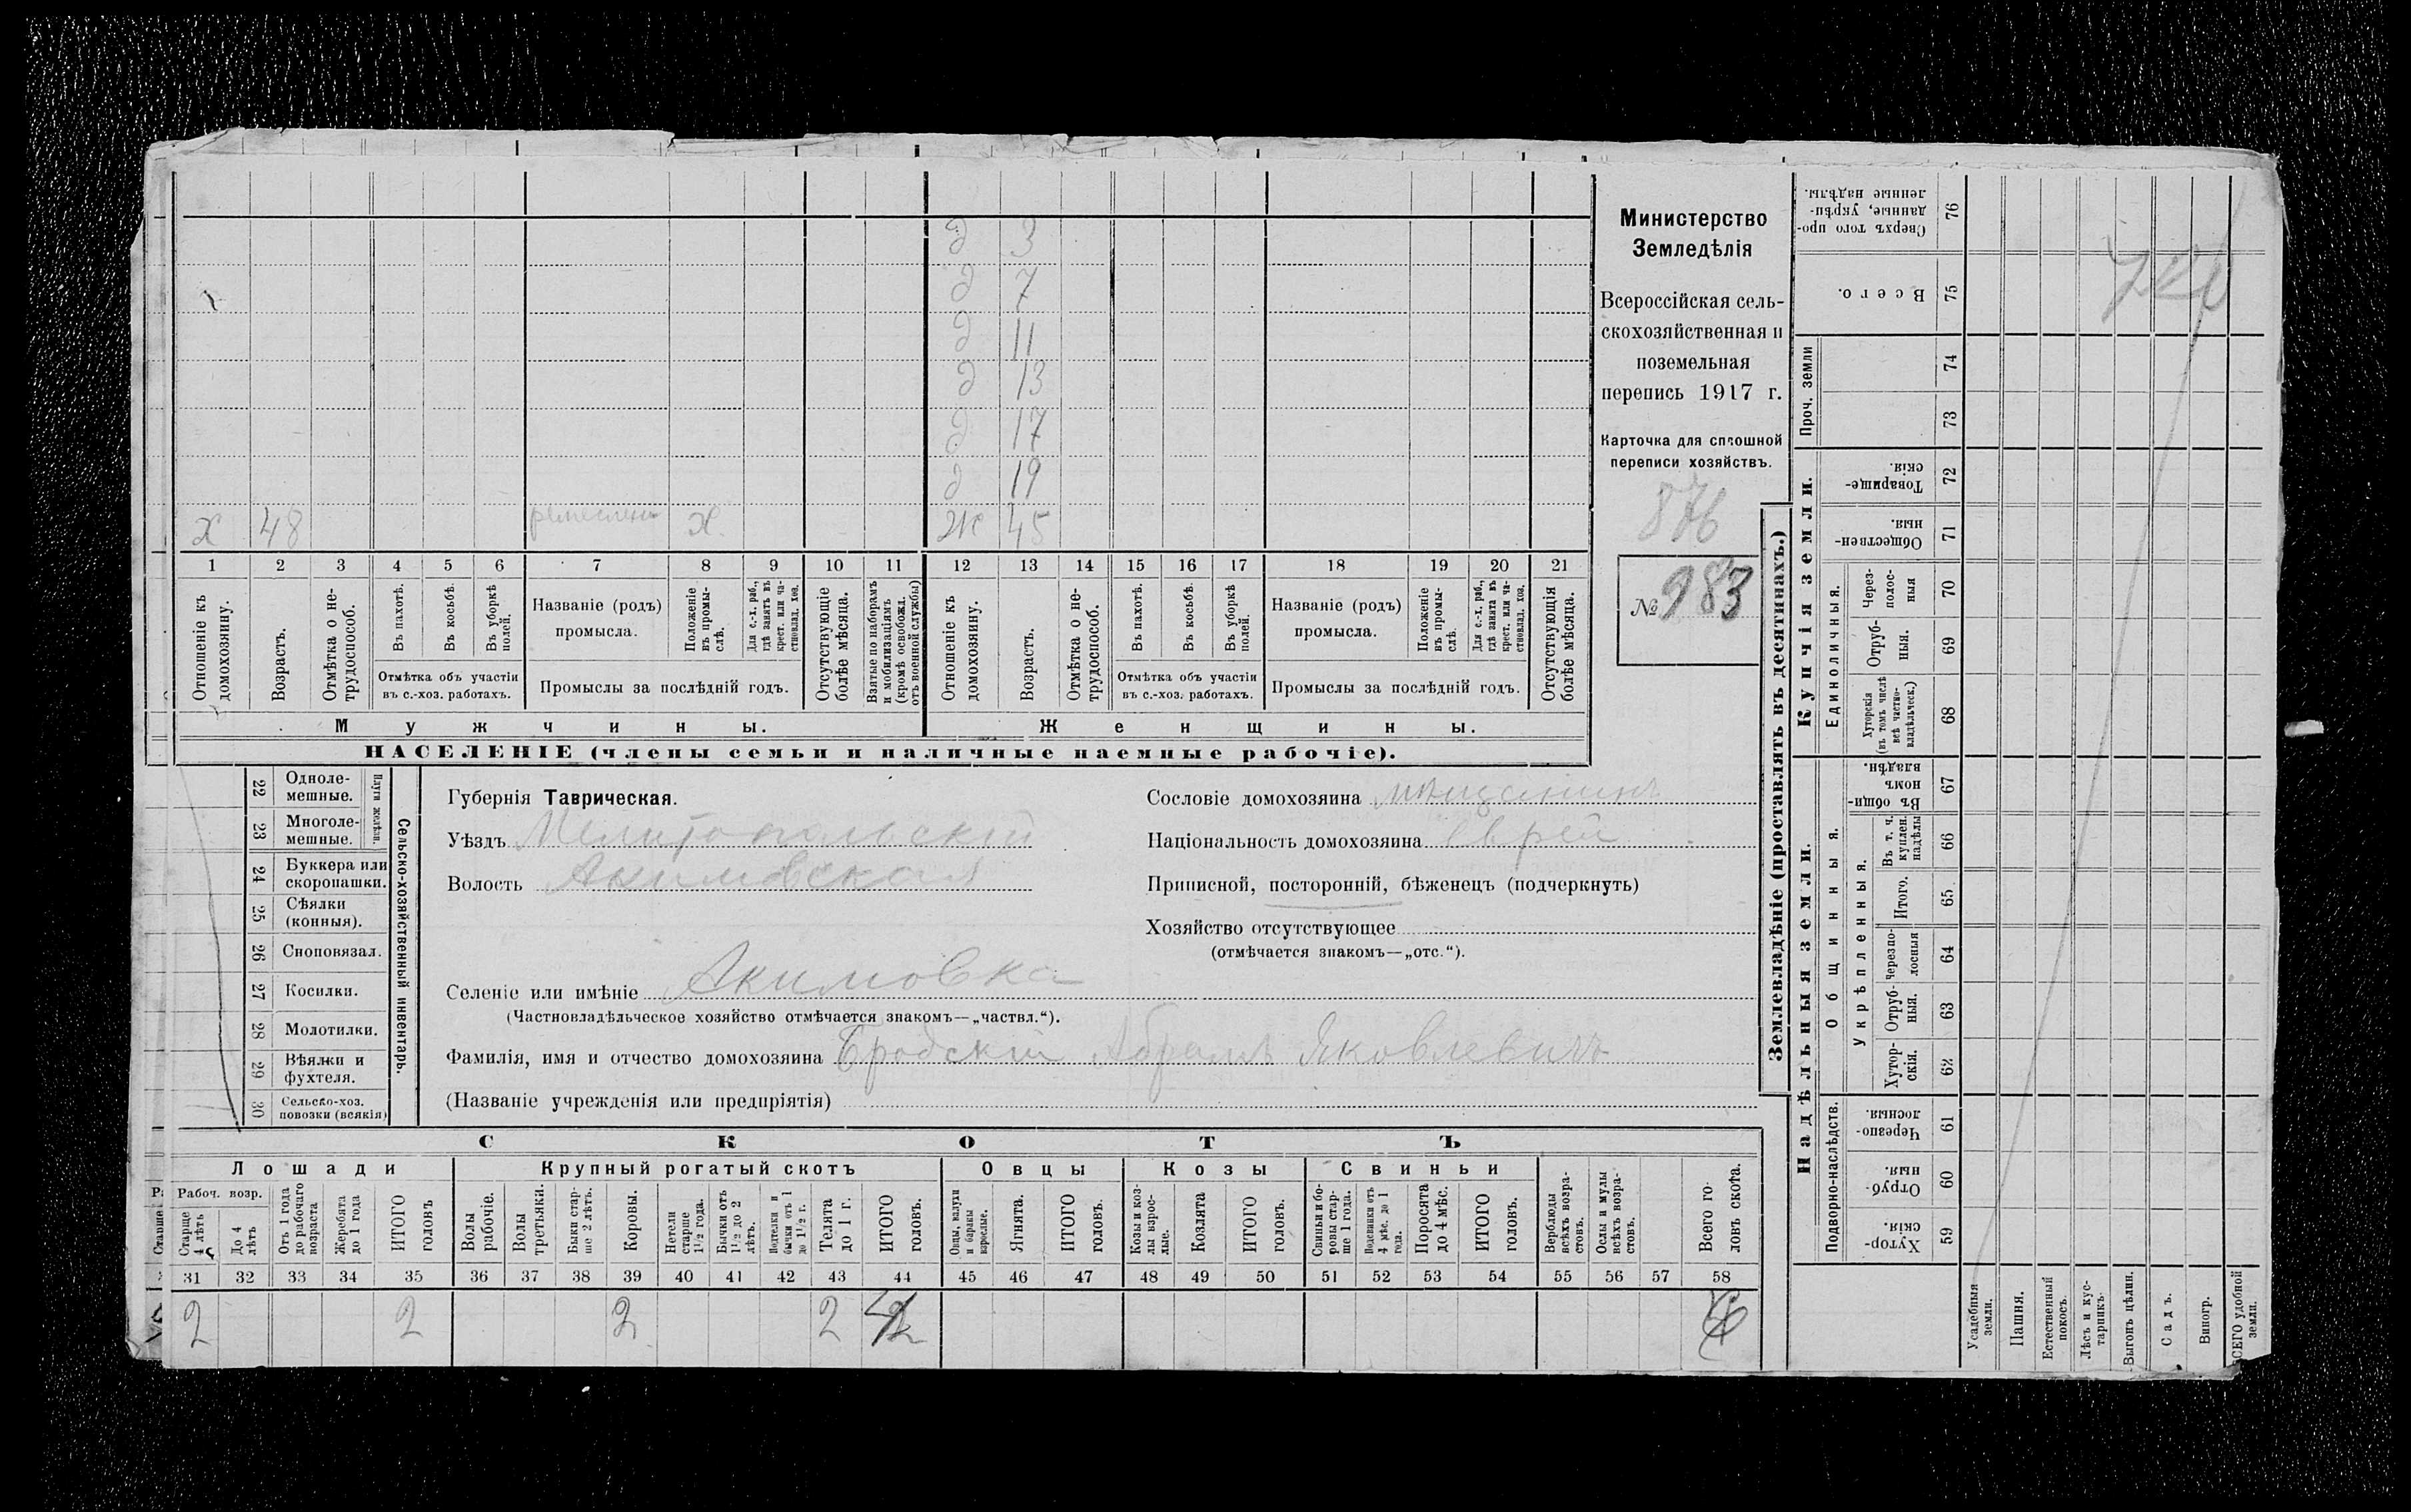 д 3
д 7
д 11
д 13
д 17
д 19
х 48 ремеслен х. ж 45
1 2 3 4 5 6 7 8 9 10 11 12 13 14 15 16 17 18 19 20 21
Отношеніе къ домохозяину.
Возрастъ.
Отмѣтка о не-трудоспособ.
Въ пахотѣ.
Въ косьбѣ.
Въ уборкѣ полей.
Отмѣтка объ участіи
въ с.-хоз. работахъ.
Названіе (родъ)
промысла.
Положеніе въ промы-слѣ.
Для с.-х. раб., гдѣ занятъ въ крест. или ча-стновлад. хоз.
Промыслы за послѣдній годъ.
Отсутствующіе болѣе мѣсяца.
Взятые по наборамъ и мобилизаціямъ (кромѣ освобожд. отъ военной службы)
Отношеніе къ домохозяину.
Возрастъ.
Отмѣтка о не-трудоспособ.
Въ пахотѣ.
Въ косьбѣ.
Въ уборкѣ полей.
Отмѣтка объ участіи
въ с.-хоз. работахъ.
Названіе (родъ)
промысла.
Положеніе въ промы-слѣ.
Для с.-х. раб., гдѣ занята въ крест. или ча-стновлад. хоз.
Промыслы за послѣдній годъ.
Отсутствующія болѣе мѣсяца.
Мужчины.
Женщины.
НАСЕЛЕНІЕ (члены семьи и наличные наемные рабочіе).
Министерство
Земледѣлія
Всероссійская сель-
скохозяйственная и
поземельная
перепись 1917 г.
Карточка для сплошной
переписи хозяйствъ.
876
№ 983
22 Одноле-мешные.
23 Многоле-мешные.
Плуги желѣзн.
24 Буккера или скоропашки.
25 Сѣялки (конныя).
26 Сноповязал.
27 Косилки.
28 Молотилки.
29 Вѣялки и фухтеля.
30 Сельско-хоз. повозки (всякія)
Сельско-хозяйственный инвентарь.
Губернія Таврическая.
Уѣздъ Мелитопольскій
Волость Акимовская
Сословіе домохозяина мѣщанинъ
Національность домохозяина еврей
Приписной, посторонній, бѣженецъ (подчеркнуть)
Хозяйство отсутствующее
(отмѣчается знакомъ—„отс.“).
Селеніе или имѣніе Акимовка
(Частновладѣльческое хозяйство отмѣчается знакомъ—„частвл.“).
Фамилія, имя и отчество домохозяина Бродскій Абрамъ Яковлевичъ
(Названіе учрежденія или предпріятія)
СКОТЪ
Лошади
Крупный рогатый скотъ
Овцы
Козы
Свиньи
Рабоч. возр.
Старше 4 лѣтъ
До 4 лѣтъ
Отъ 1 года до рабочаго возраста
Жеребята до 1 года
ИТОГО головъ
Волы рабочіе.
Волы третьяки.
Быки стар-ше 2 лѣтъ.
Коровы.
Нетели старше 1½ года.
Бычки отъ 1½ до 2 лѣтъ.
Подтелки и бычки отъ 1 до 1½ г.
Телята до 1 г.
ИТОГО головъ.
Овцы, валухи и бараны взрослые.
Ягнята.
ИТОГО головъ.
Козы и коз-лы взрос-лые.
Козлята
ИТОГО головъ.
Свиньи и бо-ровы стар-ше 1 года.
Подсвинки отъ 4 мѣс. до 1 года.
Поросята до 4 мѣс.
ИТОГО головъ.
Верблюды всѣхъ возра-стовъ.
Ослы и мулы всѣхъ возра-стовъ.
Всего го-ловъ скота.
31 32 33 34 35 36 37 38 39 40 41 42 43 44 45 46 47 48 49 50 51 52 53 54 55 56 57 58
2 2 2 2
Землевладѣніе (проставлять въ десятинахъ.)
Купчія земли.
Надѣльныя земли.
Сверхъ того про-данные, укрѣп-ленные надѣлы. 76
Всего. 75
Проч. земли
74
73
Товарище-скія. 72
Обществен-ныя. 71
Единоличныя.
Через-полос-ныя 70
Отруб-ныя. 69
Хуторскія (въ томъ числѣ всѣ частно-владѣльческ.) 68
Общинныя.
Въ общин-номъ владѣн. 67
Укрѣпленныя.
Въ т. ч. куплен. надѣлы 66
Итого. 65
Черезпо-лосныя 64
Отруб-ныя. 63
Хутор-скія. 62
Подворно-наслѣдств.
Черезпо-лосныя. 61
Отруб-ныя. 60
Хутор-скія. 59
Усадебныя земли.
Пашня.
Естественный покосъ.
Лѣсъ и кус-тарникъ.
Выгонъ цѣлин.
Садъ.
Виногр.
ВСЕГО удобной земли.